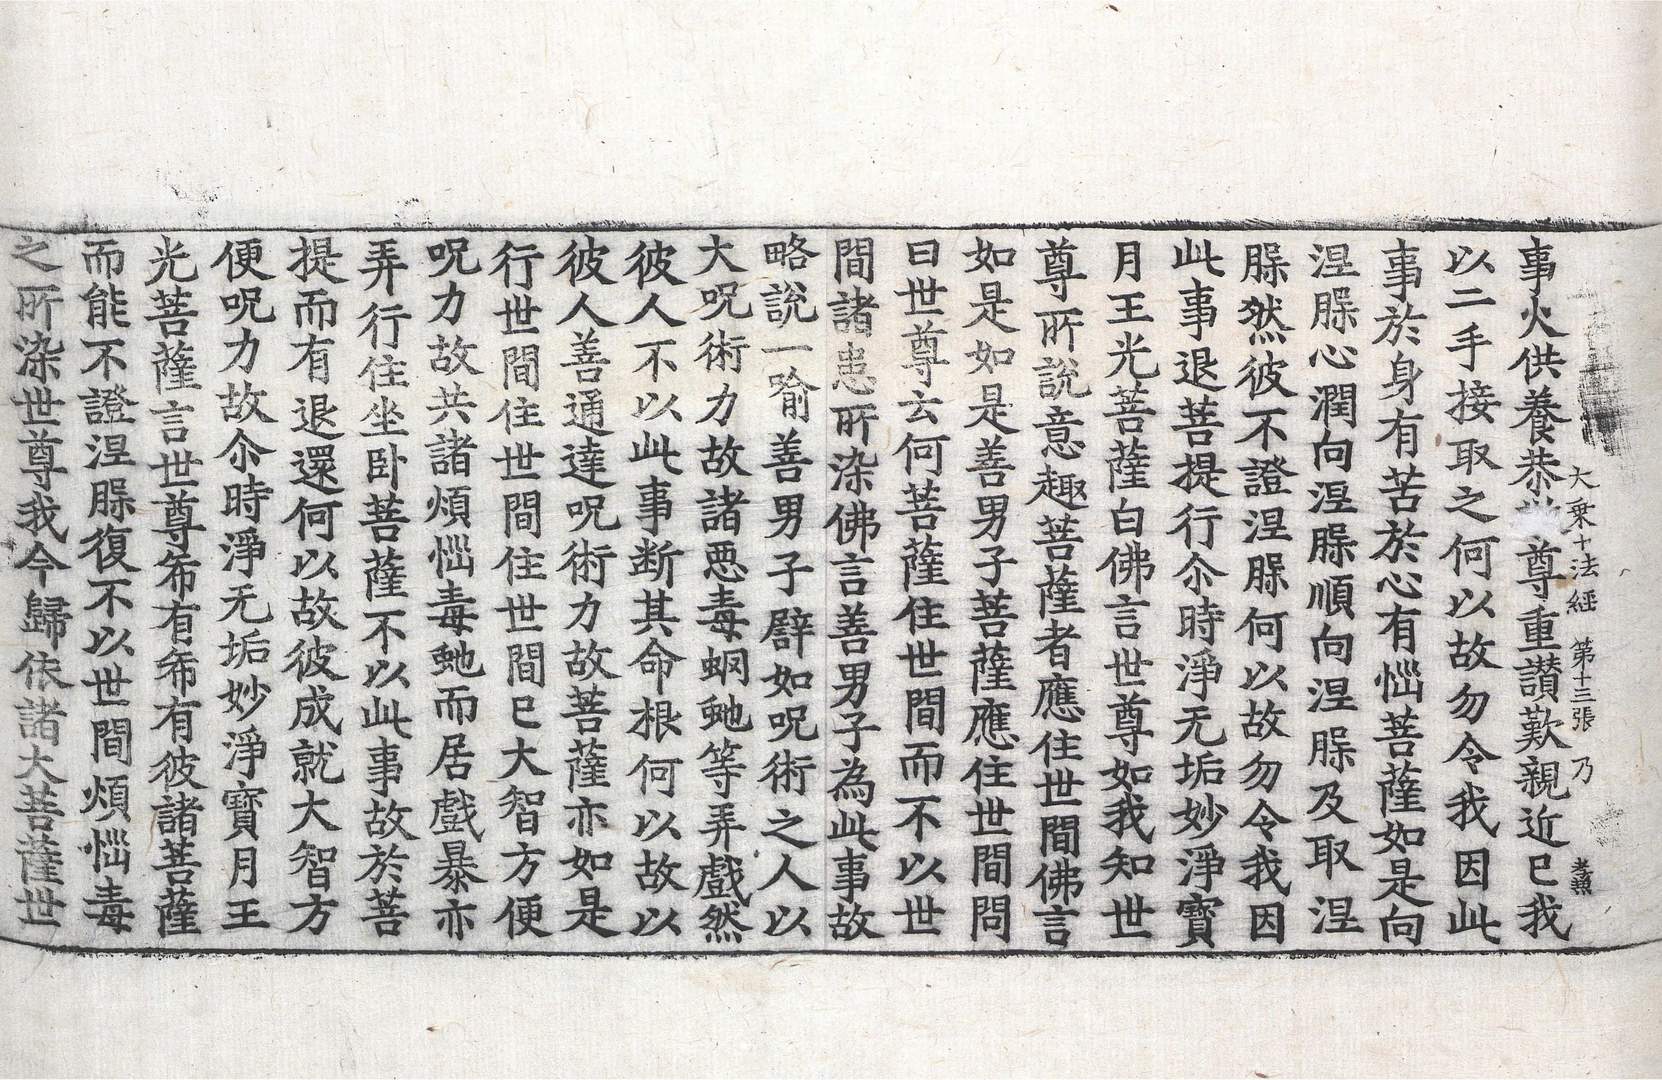 大乗十法經　第十三張　乃　孝照
事火供養恭尊重讃歎親近已我
以二手接取之何以故勿令我因此
事於身有苦於心有惱菩薩如是向
涅槃心潤向涅槃順向涅槃及取涅
槃然彼不證涅槃何以故勿令我因
此事退菩提行尒時淨无垢妙淨寶
月王光菩薩白佛言世尊如我知世
尊所說意趣菩薩者應住世間佛言
如是如是善男子菩薩應住世間問
曰世尊云何菩薩住世間而不以世
間諸患所染佛言善男子為此事故
略說一喻善男子譬如呪術之人以
大呪術力故諸惡毒蛧虵等弄戲然
彼人不以此事断其命根何以故以
彼人善通達呪術力故菩薩亦如是
行世間住世間住世間已大智方便
呪力故共諸煩惱毒虵而居戲暴亦
弄行住坐卧菩薩不以此事故於菩
提而有退還何以故彼成就大智方
便呪力故尒時淨无垢妙淨寶月王
光菩薩言世尊希有希有彼諸菩薩
而能不證涅槃復不以世間煩惱毒
之所染世尊我今歸依諸大菩薩世